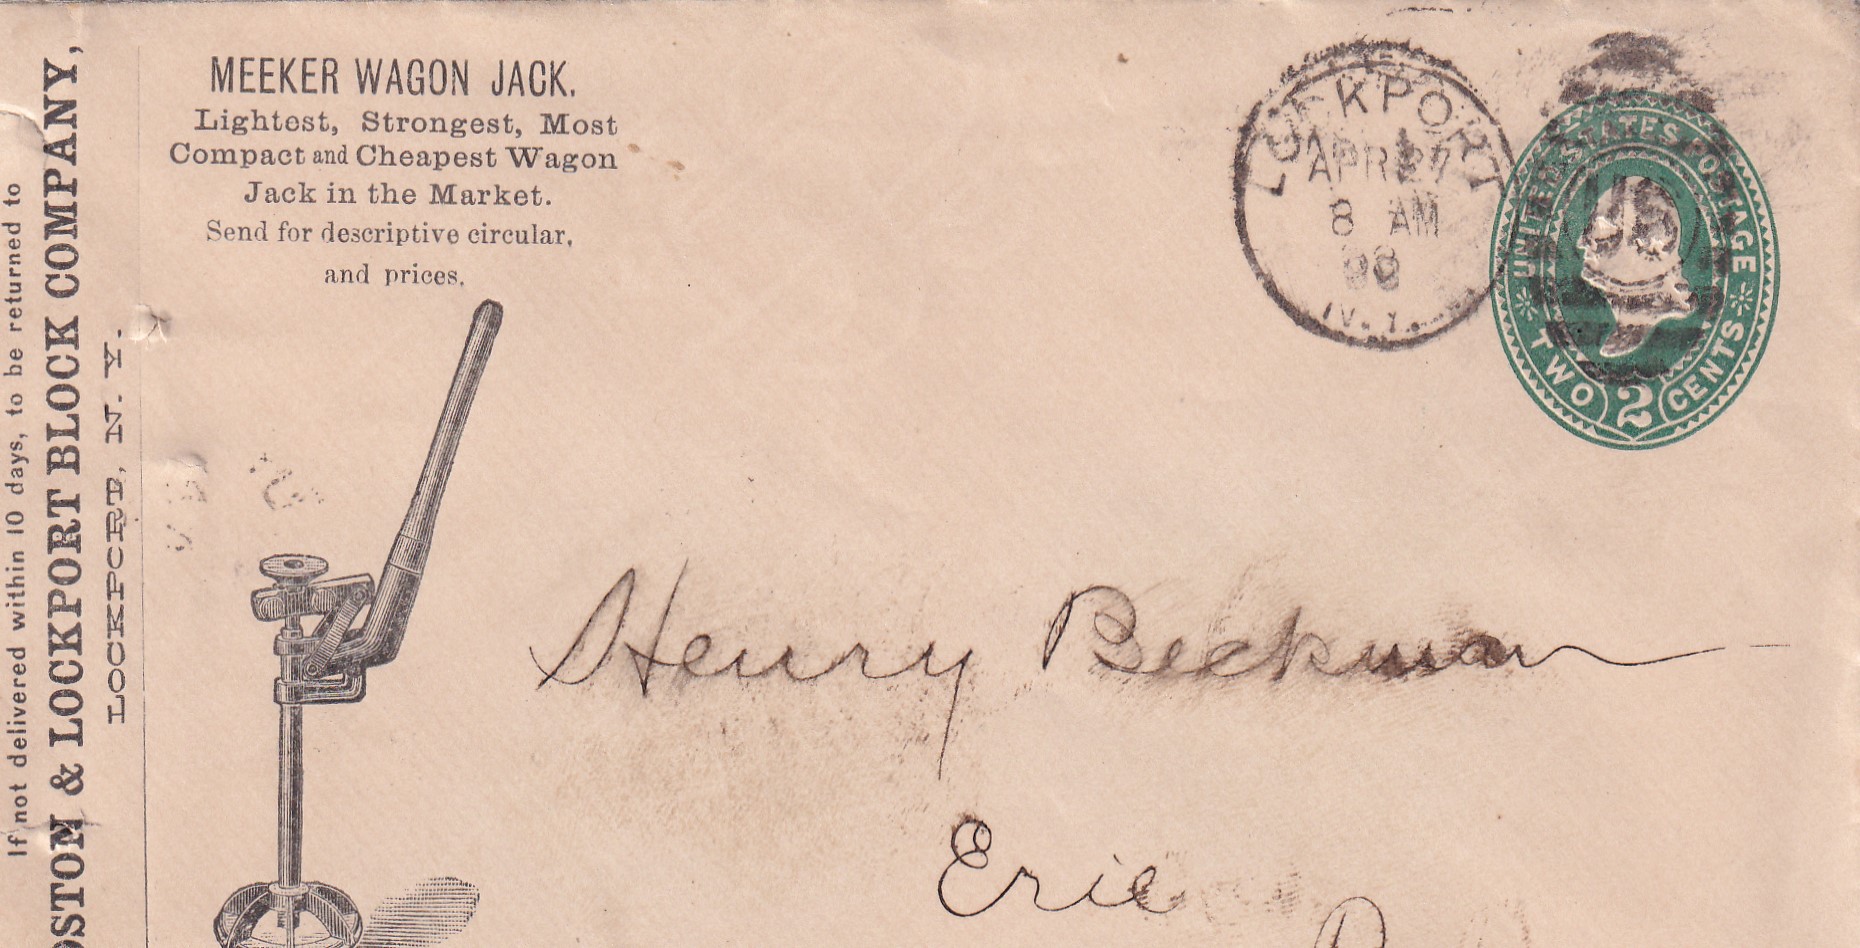 If not delivered within 10 days, to be returned to
OSTON & LOCKPORT BLOCK COMPANY,
LOCKPORT, N. Y.
MEEKER WAGON JACK.
Lightest, Strongest, Most
Compact and Cheapest Wagon
Jack in the Market.
Send for descriptive circular,
and prices.
LOCKPORT
APR 27
8 AM
N.Y.
UNITED STATES POSTAGE
TWO 2 CENTS
US
Henry Beckman
Erie